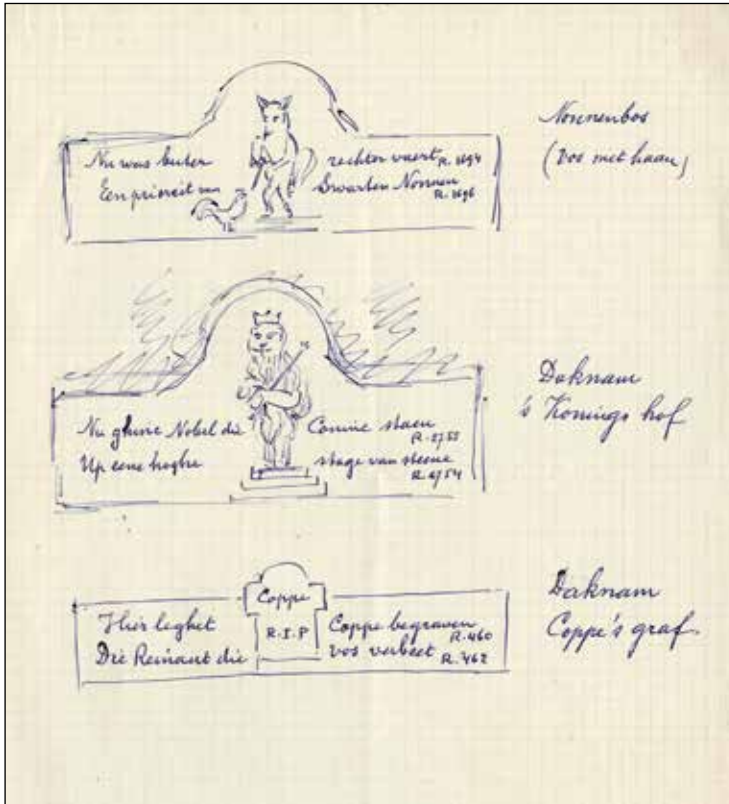 Nu was buter rechter vaert R. 1694
Een prioreit van Swarten Nonnen
R. 1696
Nonnenbos
(Vos met haan)
Nu ghinc Nobel die Coninc staen
R. 2753
Up eene hoghe stage van steene
R. 2754
Daknam
's Konings hof
Coppe
R.I.P
Hier leghet Coppe begraven
R. 460
Die Reinaut die vos verbeet R. 462
Daknam
Coppe's graf